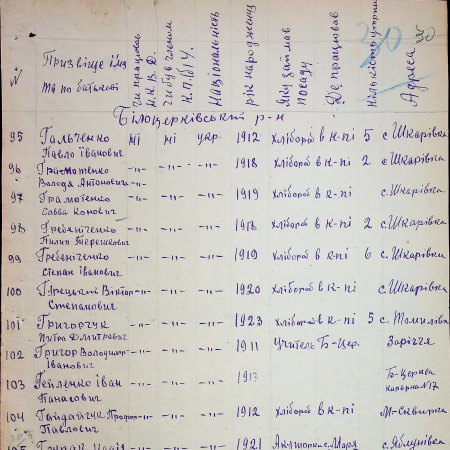 N Призвіще ім'я та по батькові Чи працював Н.К.В.Д. Чи був членом К.П.(б)У. Національність рік народження Яку займав посаду Де працював Кількість утрим Адреса
30
Білоцерківський р-н
95 Гальченко Павло Іванович ні ні укр. 1912 хлібороб в к-пі 5 с. Шкарівка
96 Грамотенко Володя Антонович -"- -"- -"- 1918 хлібороб в к-пі 2 с. Шкарівка
97 Грамотенко Савва -"- -"- -"- 1919 хлібороб в к-пі с. Шкарівка
98 Гребениченко Пилип Терешкович -"- -"- -"- 1918 хлібороб в к-пі 2 с. Шкарівка
99 Гребениченко Степан Іванович -"- -"- -"- 1919 хлібороб в к-пі 6 с. Шкарівка
100 Грецький Віктор Степанович -"- -"- -"- 1920 хлібороб в к-пі с. Шкарівка
101 Григорчук Петро Дмитрович -"- -"- -"- 1923 хлібороб в к-пі 5 с. Томилівка
102 Григор Володимир Іванович -"- -"- -"- 1911 Учитель Б-Цер. Заріччя
103 Гейленко Іван Панасович -"- -"- -"- Б-Церква N17
104 Гайдайчук Павлович -"- -"- -"- 1912 хлібороб в к-пі М-Сквирка
105 -"- -"- -"- 1921 с. Яблунівка